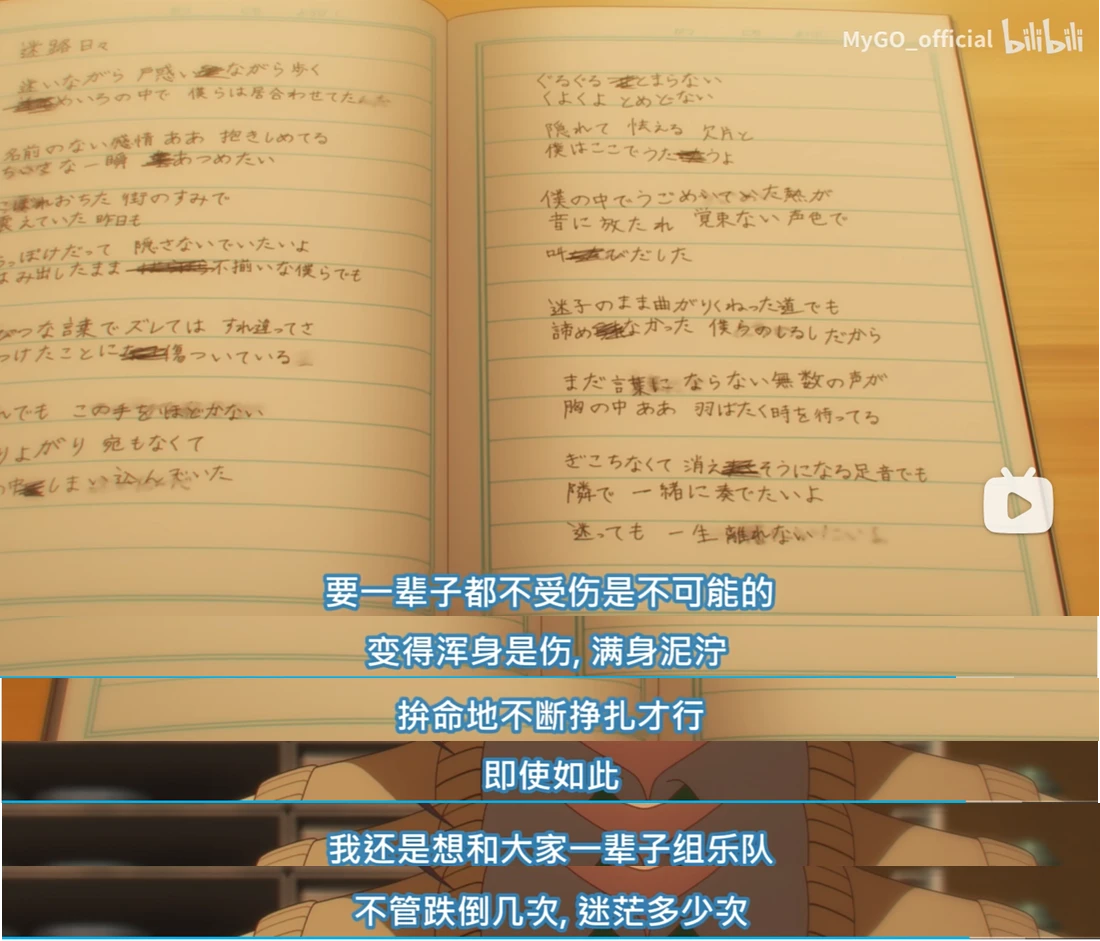 迷路日々
迷いながら 戸惑いながら歩く
めいろの中で 僕らは居合わせてたんだ
名前のない感情 ああ 抱きしめてる
な一瞬 あつめたい
おちた 街のすみで
震えていた 昨日も
っぽけだって 隠さないでいたいよ
はみ出したまま 不揃いな僕らでも
びつな言葉で ズレては すれ違ってさ
つけたことに 傷ついている
んでも この手をほどかない
りよがり 宛もなくて
しまい込んでいた
MyGO_official bilibili
ぐるぐる とまらない
くよくよ とめどない
隠れて 怯える 欠片と
僕はここでうたうよ
僕の中でうごめいてめた熱が
昔に放たれ 覚束ない声色で
叫びだした
迷子のまま曲がりくねった道でも
諦めなかった 僕らのしるしだから
まだ言葉に ならない無数の声が
胸の中 ああ 羽ばたく時を待ってる
ぎこちなくて 消えそうになる足音でも
隣で 一緒に奏でたいよ
迷っても 一生 離れない
要一辈子都不受伤是不可能的
变得浑身是伤, 满身泥泞
拚命地不断挣扎才行
即使如此
我还是想和大家一辈子组乐队
不管跌倒几次, 迷茫多少次